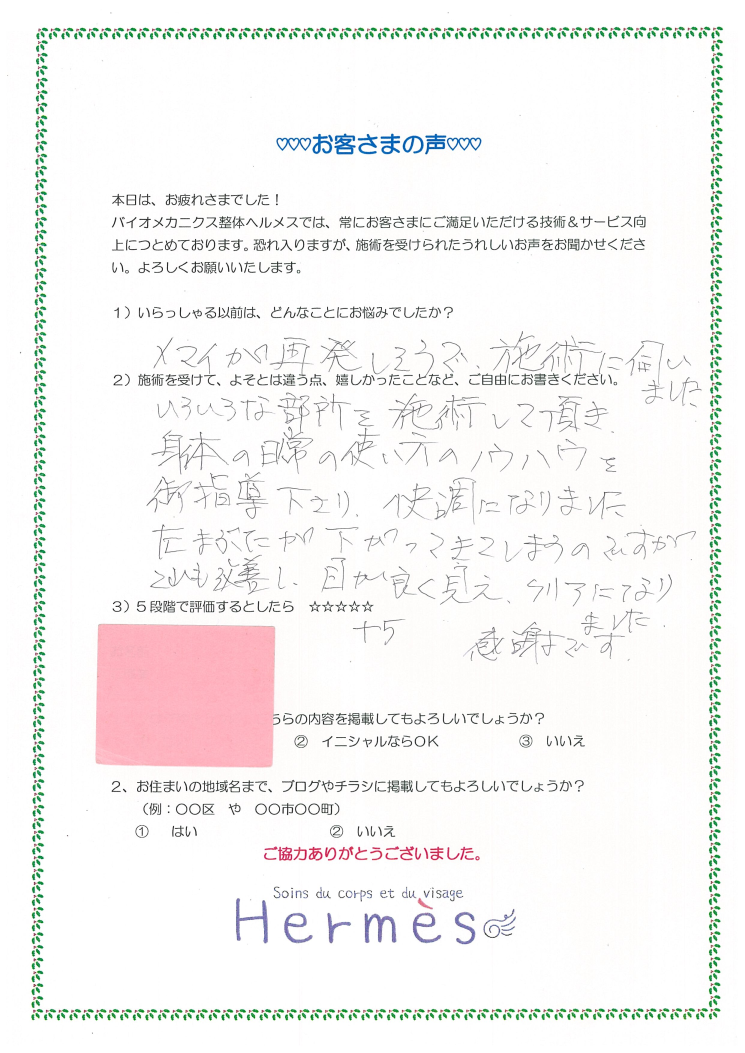 ♡♡♡お客さまの声♡♡♡
本日は、お疲れさまでした！
バイオメカニクス整体ヘルメスでは、常にお客さまにご満足いただける技術＆サービス向
上につとめております。恐れ入りますが、施術を受けられたうれしいお声をお聞かせくださ
い。よろしくお願いいたします。
１）いらっしゃる以前は、どんなことにお悩みでしたか？
メマイが再発しそうで、施術に伺い
ました
２）施術を受けて、よそとは違う点、嬉しかったことなど、ご自由にお書きください。
いろいろな部所を施術して頂き、
身体の日常の使い方のノウハウを
御指導下さり、快調になりました
左まぶたが下がってきてしまうのですが
それも改善し、目が良く見え、クリアになり
ました。
３）５段階で評価するとしたら ☆☆☆☆☆
+5
感謝です。
ちらの内容を掲載してもよろしいでしょうか？
② イニシャルならＯＫ ③ いいえ
２、お住まいの地域名まで、ブログやチラシに掲載してもよろしいでしょうか？
（例：〇〇区 や 〇〇市〇〇町）
① はい ② いいえ
ご協力ありがとうございました。
Soins du corps et du visage
Hermès